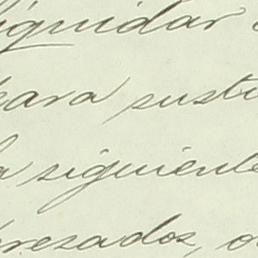 liquidar
para susti
a siguiente
presados, o